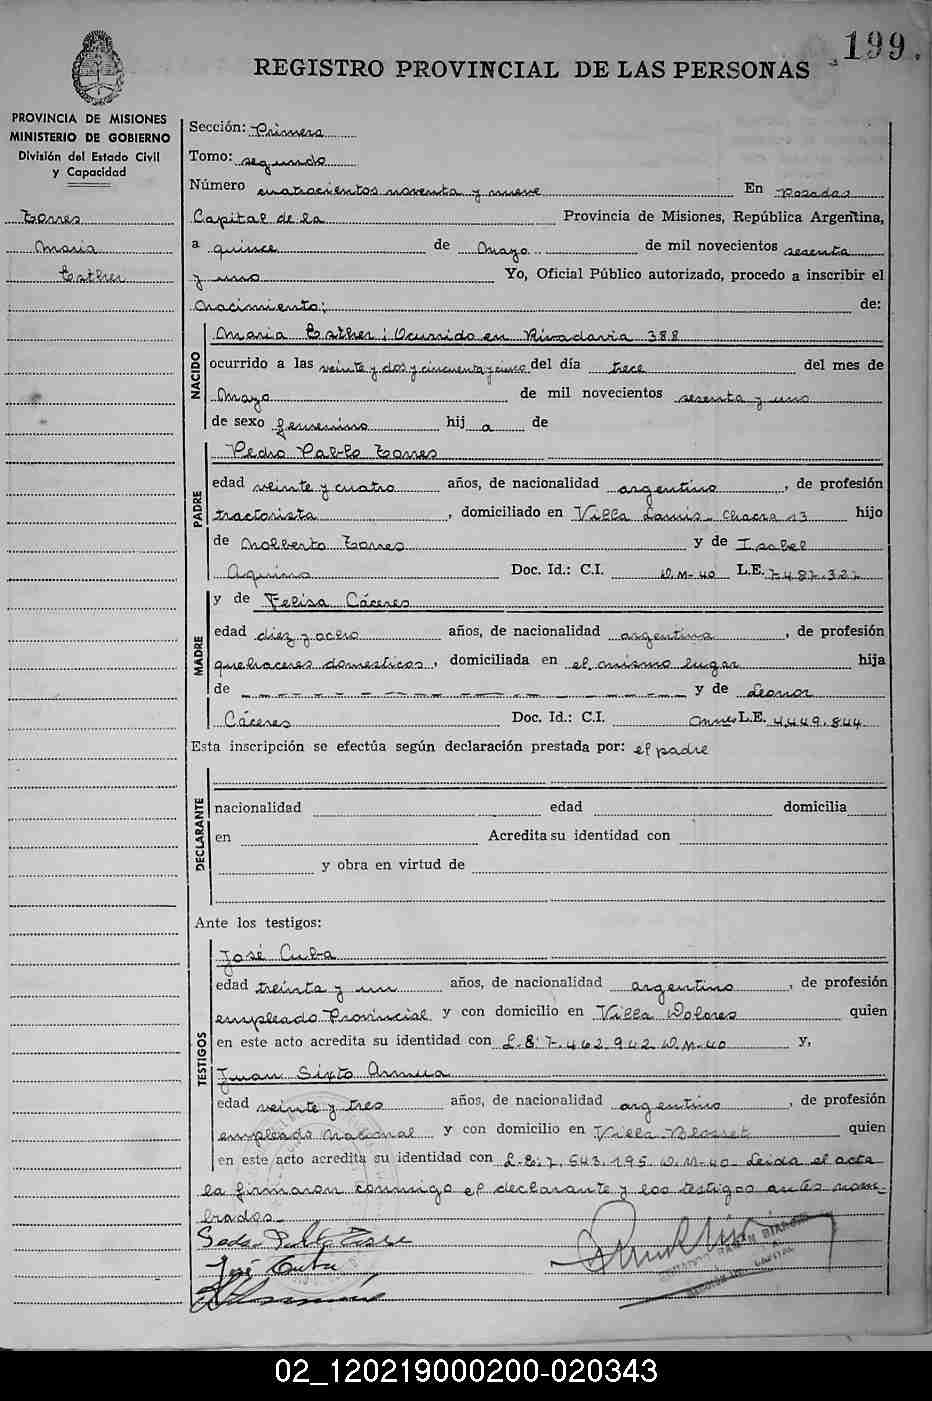 199.
REGISTRO PROVINCIAL DE LAS PERSONAS
PROVINCIA DE MISIONES
MINISTERIO DE GOBIERNO
División del Estado Civil
y Capacidad
Torres
Maria
Esther
Sección: Primera
Tomo: segundo
Número cuatrocientos noventa y nueve En Posadas
Capital de la Provincia de Misiones, República Argentina,
a quince de Mayo de mil novecientos sesenta
y uno Yo, Oficial Público autorizado, procedo a inscribir el
Nacimiento: de:
NACIDO
Maria Esther; Ocurrido en Rivadavia 388
ocurrido a las veinte y dos y cincuenta y cinco del día trece del mes de
Mayo de mil novecientos sesenta y uno
de sexo femenino hij a de
PADRE
Pedro Pablo Torres
edad veinte y cuatro años, de nacionalidad argentino, de profesión
tractorista, domiciliado en Villa Lanus - Chacra 13 hijo
de Nolberto Torres y de Isabel
Aquino Doc. Id.: C.I. D.M-40 L.E. 7.487.322
MADRE
y de Felisa Cáceres
edad diez y ocho años, de nacionalidad argentina, de profesión
quehaceres domesticos, domiciliada en el mismo lugar hija
de y de Leonor
Cáceres Doc. Id.: C.I. L.E. 4.449.844
Esta inscripción se efectúa según declaración prestada por: el padre
DECLARANTE
nacionalidad edad domicilia
en Acredita su identidad con
y obra en virtud de
Ante los testigos:
TESTIGOS
José Cuba
edad treinta y un años, de nacionalidad argentino, de profesión
empleado Provincial y con domicilio en Villa Dolores quien
en este acto acredita su identidad con L.E. 7.462.942 D.M-40 y,
Juan Sixto
edad veinte y tres años, de nacionalidad argentino, de profesión
empleado Nacional y con domicilio en Villa Blosset quien
en este acto acredita su identidad con L.E. 7.543.195 D.M-40 - Leida el acta
la firmaron conmigo el declarante y los testigos antes nom-
brados -
José Cuba
02_120219000200-020343